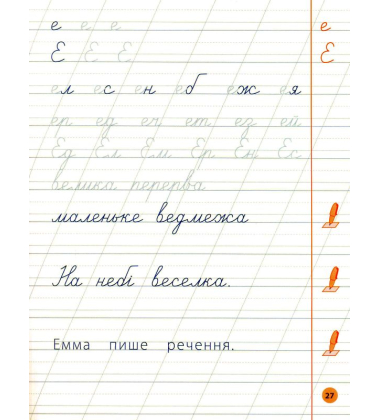 е е е е
Е Е Е Е
ел ес ен еб еж ея
ер ед еч ет ег ей
Ед Ел Ем Ер Ен Ес
велика перерва
маленьке ведмежа
На небі веселка.
Емма пише речення.
27